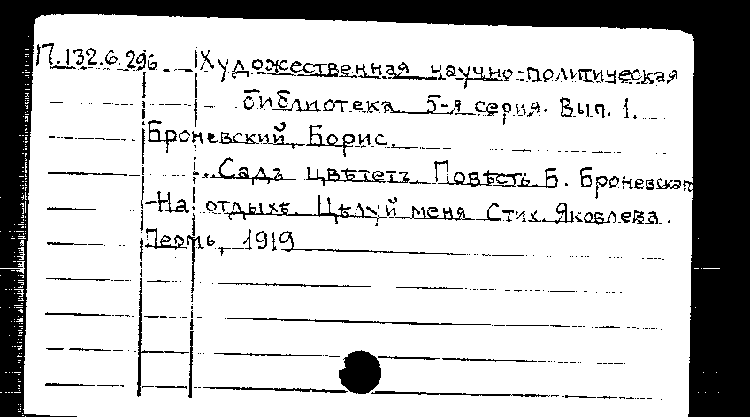 П.132.6.296 Художественная научно-политическая
библиотека 5-я серия. Вып. 1.
Броневский, Борис.
...Садъ цвѣтетъ Повѣсть Б. Броневскаго
-На отдыхѣ. Цѣлуй меня Стих. Яковлева.
Пермь, 1919